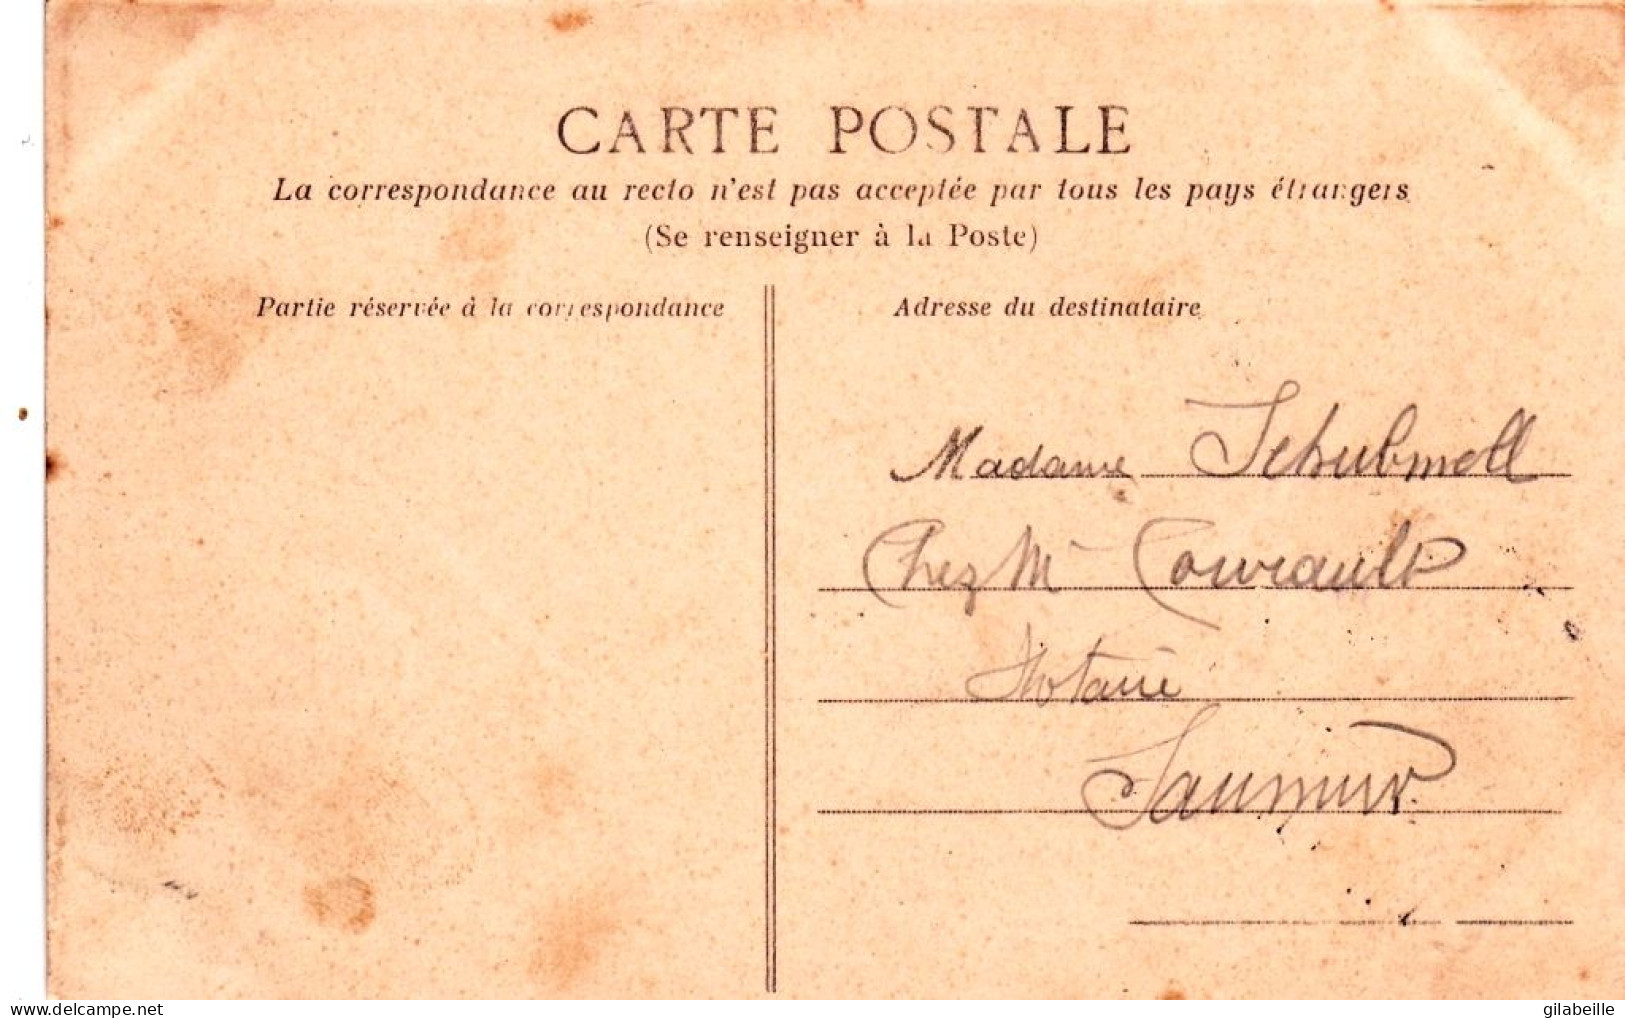 CARTE POSTALE
La correspondance au recto n'est pas acceptée par tous les pays étrangers
(Se renseigner à la Poste)
Partie réservée à la correspondance
Adresse du destinataire
Madame Schubmell
Chez Mr Couvrault
Notaire
Saumur
delcampe.net
gilabeille